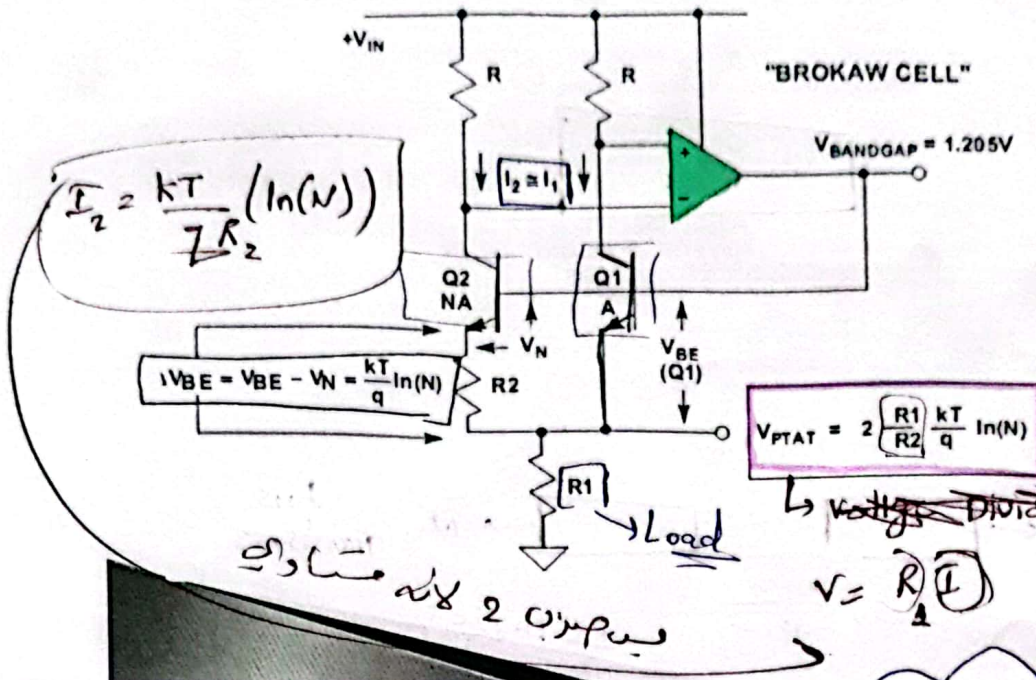 +V_IN
R
R
"BROKAW CELL"
V_BANDGAP = 1.205V
I₂ ≅ I₁
+
-
I₂ = kT/qR₂ (ln(N))
Q2
NA
Q1
A
V_N
V_BE
(Q1)
V_BE = V_BE – V_N = kT/q ln(N)
R2
V_PTAT = 2 R1/R2 kT/q ln(N)
R1
Load
V = R₁ I
2 لأنه